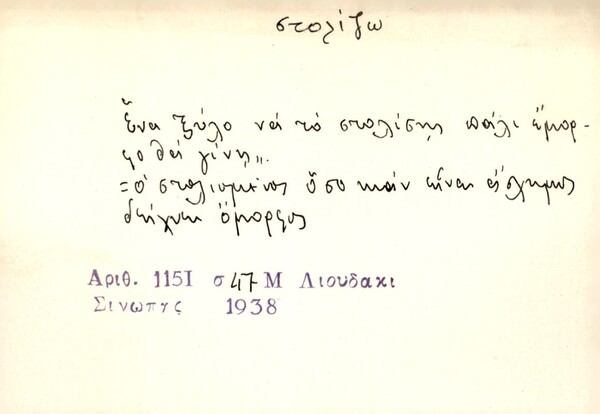 στολίζω
Ἕνα ξύλο νά τό στολίσῃς πάλι ὄμορ-
φο θά γίνῃ„.
= ὁ στολισμένος ὅσο κι ἄν εἶναι ἄσχημος
δείχνει ὄμορφος
Αριθ. 1151 σ 47 Μ Λιουδακι
Σινωπης 1938